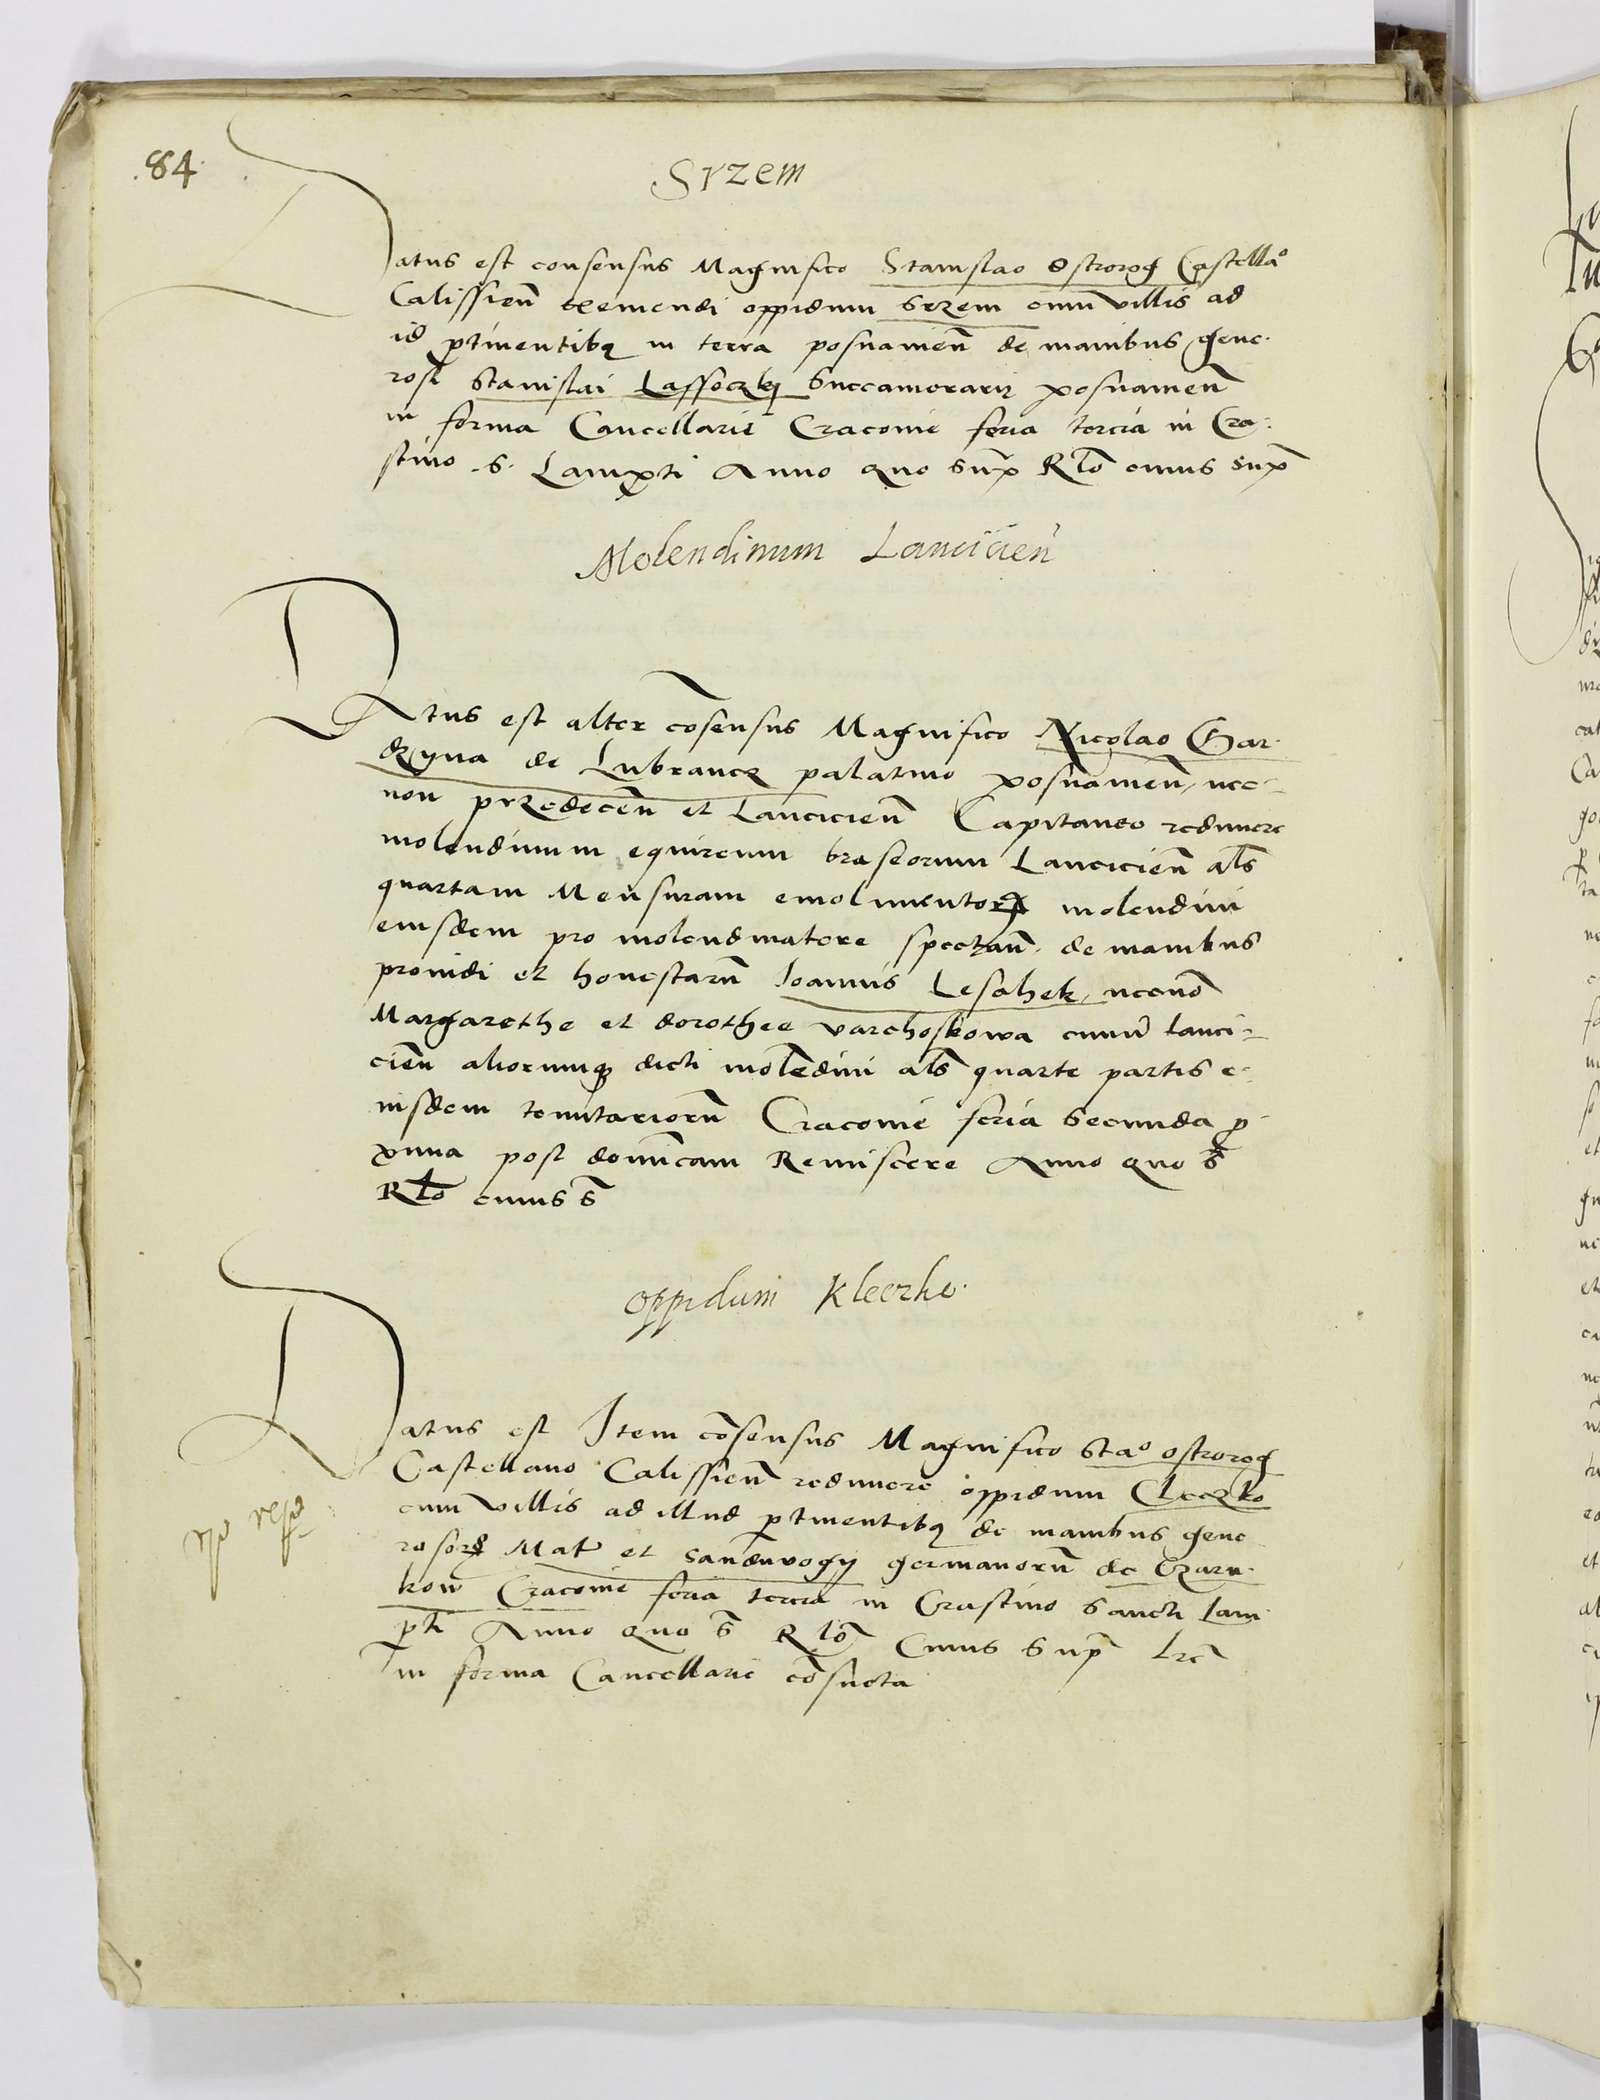 84
Srzem
Datus est consensus Magnifico Stanislao Ostrorog Castellao
Calissien̄ exemendi oppidum Srzem cum villis ad
id ꝑtinentibꝫ in terra posnanien̄ de manibus gene-
rosi Stanislai Lassoczky Succamerarij posnanien̄
in forma Cancellarie Cracovie feria tercia in Cra-
stino S. Lamꝑti Anno quo sup̄ Rl̄o cuius sup̄
Molendinum Lancicien̄
Datus est alter cōsensus Magnifico Nicolao Gar-
dzyna de Lubrancz palatino posnanien̄, nec-
non przedecen̄ et Lancicien̄ Capitaneo redimere
molendinum equireum braseorum Lancicien̄ al̄s
quartam Mensuram emolumentoꝝ molendini
eiusdem pro molendinatore spectan̄. de manibus
providi et honestarū Joannis Lesahek, necnō
Margarethe et dorothee varchoskowa civiū lanci-
cien̄ aliorumqꝫ dicti molēdini al̄s quarte partis e-
iusdem tenutariorū Cracovie feria secunda ꝓ-
xima post dominicam Reminiscere Anno quo s̄
Rl̄o cuius s̄
oppidum Kleczko.
Datus est Item cōsensus Magnifico Stao ostrorog
Castellano Calissien̄ redimere oppidum Cleczko
cum villis ad illud ꝑtinentibꝫ de manibus gene
rosoꝝ Mat̄ et Sandivogij germanorū de Czarn-
kow Cracovie feria tercia in Crastino Sancti Lam
ꝑti Anno quo s̄ Rl̄o Cuius sup̄ Lrē
in forma Cancellarie cōsueta